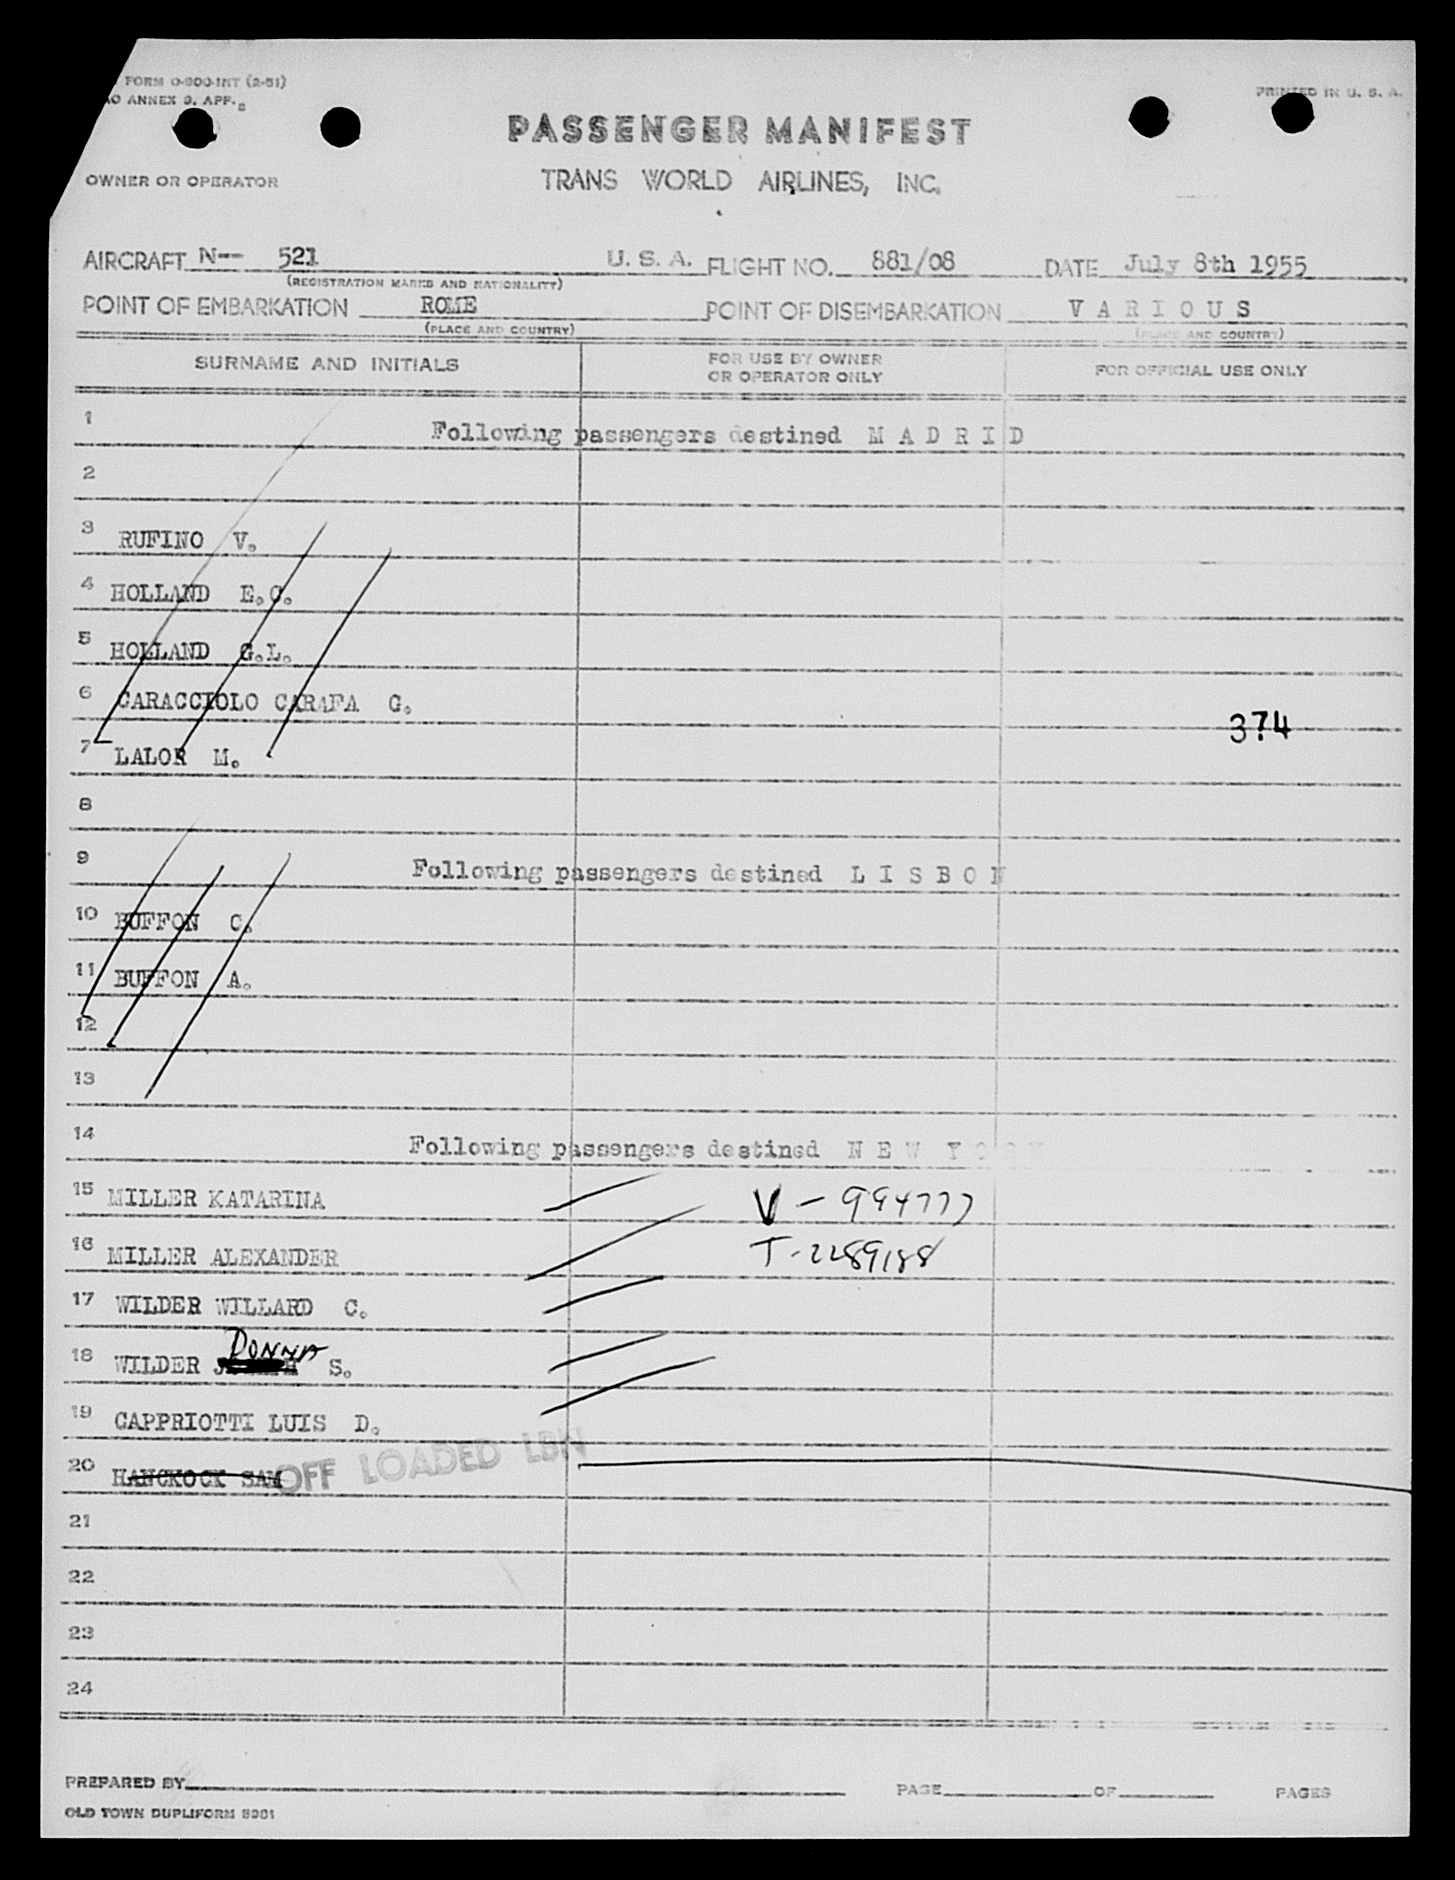 FORM O-900-INT (2-51)
ANNEX 9. APP.
PRINTED IN U. S. A.
PASSENGER MANIFEST
OWNER OR OPERATOR
TRANS WORLD AIRLINES, INC.
AIRCRAFT N-- 521 U. S. A. FLIGHT NO. 881/08 DATE July 8th 1955
(REGISTRATION MARKS AND NATIONALITY)
POINT OF EMBARKATION ROME POINT OF DISEMBARKATION V A R I O U S
(PLACE AND COUNTRY) (PLACE AND COUNTRY)
SURNAME AND INITIALS FOR USE BY OWNER OR OPERATOR ONLY FOR OFFICIAL USE ONLY
1 Following passengers destined M A D R I D
2
3 RUFINO V.
4 HOLLAND E.C.
5 HOLLAND G.L.
6 CARACCIOLO CARAFA G.
374
7 LALOR M.
8
9 Following passengers destined L I S B O N
10 BUFFON C.
11 BUFFON A.
12
13
14 Following passengers destined N E W Y O R K
15 MILLER KATARINA V - 994777
16 MILLER ALEXANDER T-2289188
17 WILDER WILLARD C.
DONNA
18 WILDER S.
19 CAPPRIOTTI LUIS D.
20 HANCKOCK SAM OFF LOADED LBN
21
22
23
24
PREPARED BY PAGE OF PAGES
OLD TOWN DUPLIFORM